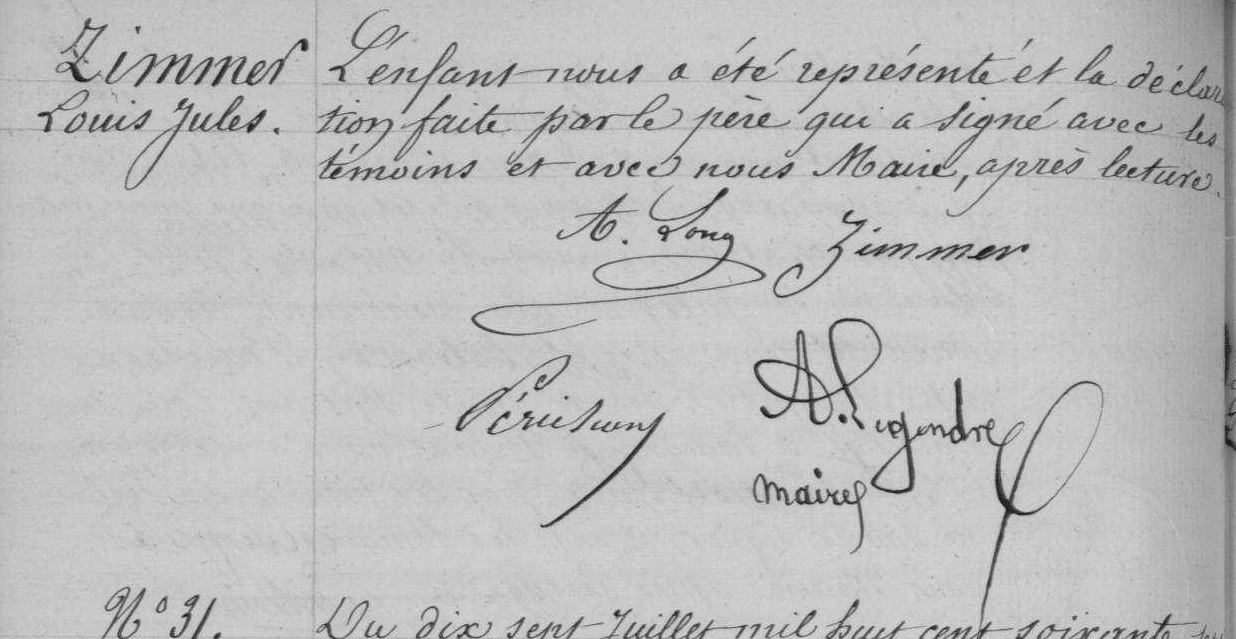 Zimmer
Louis Jules.
L'enfant nous a été représenté et la déclara
tion faite par le père qui a signé avec les
témoins et avec nous Maire, après lecture.
A. Long
Zimmer
A. Legendre
maire
N° 31.
Du dix sept Juillet mil huit cent soixant